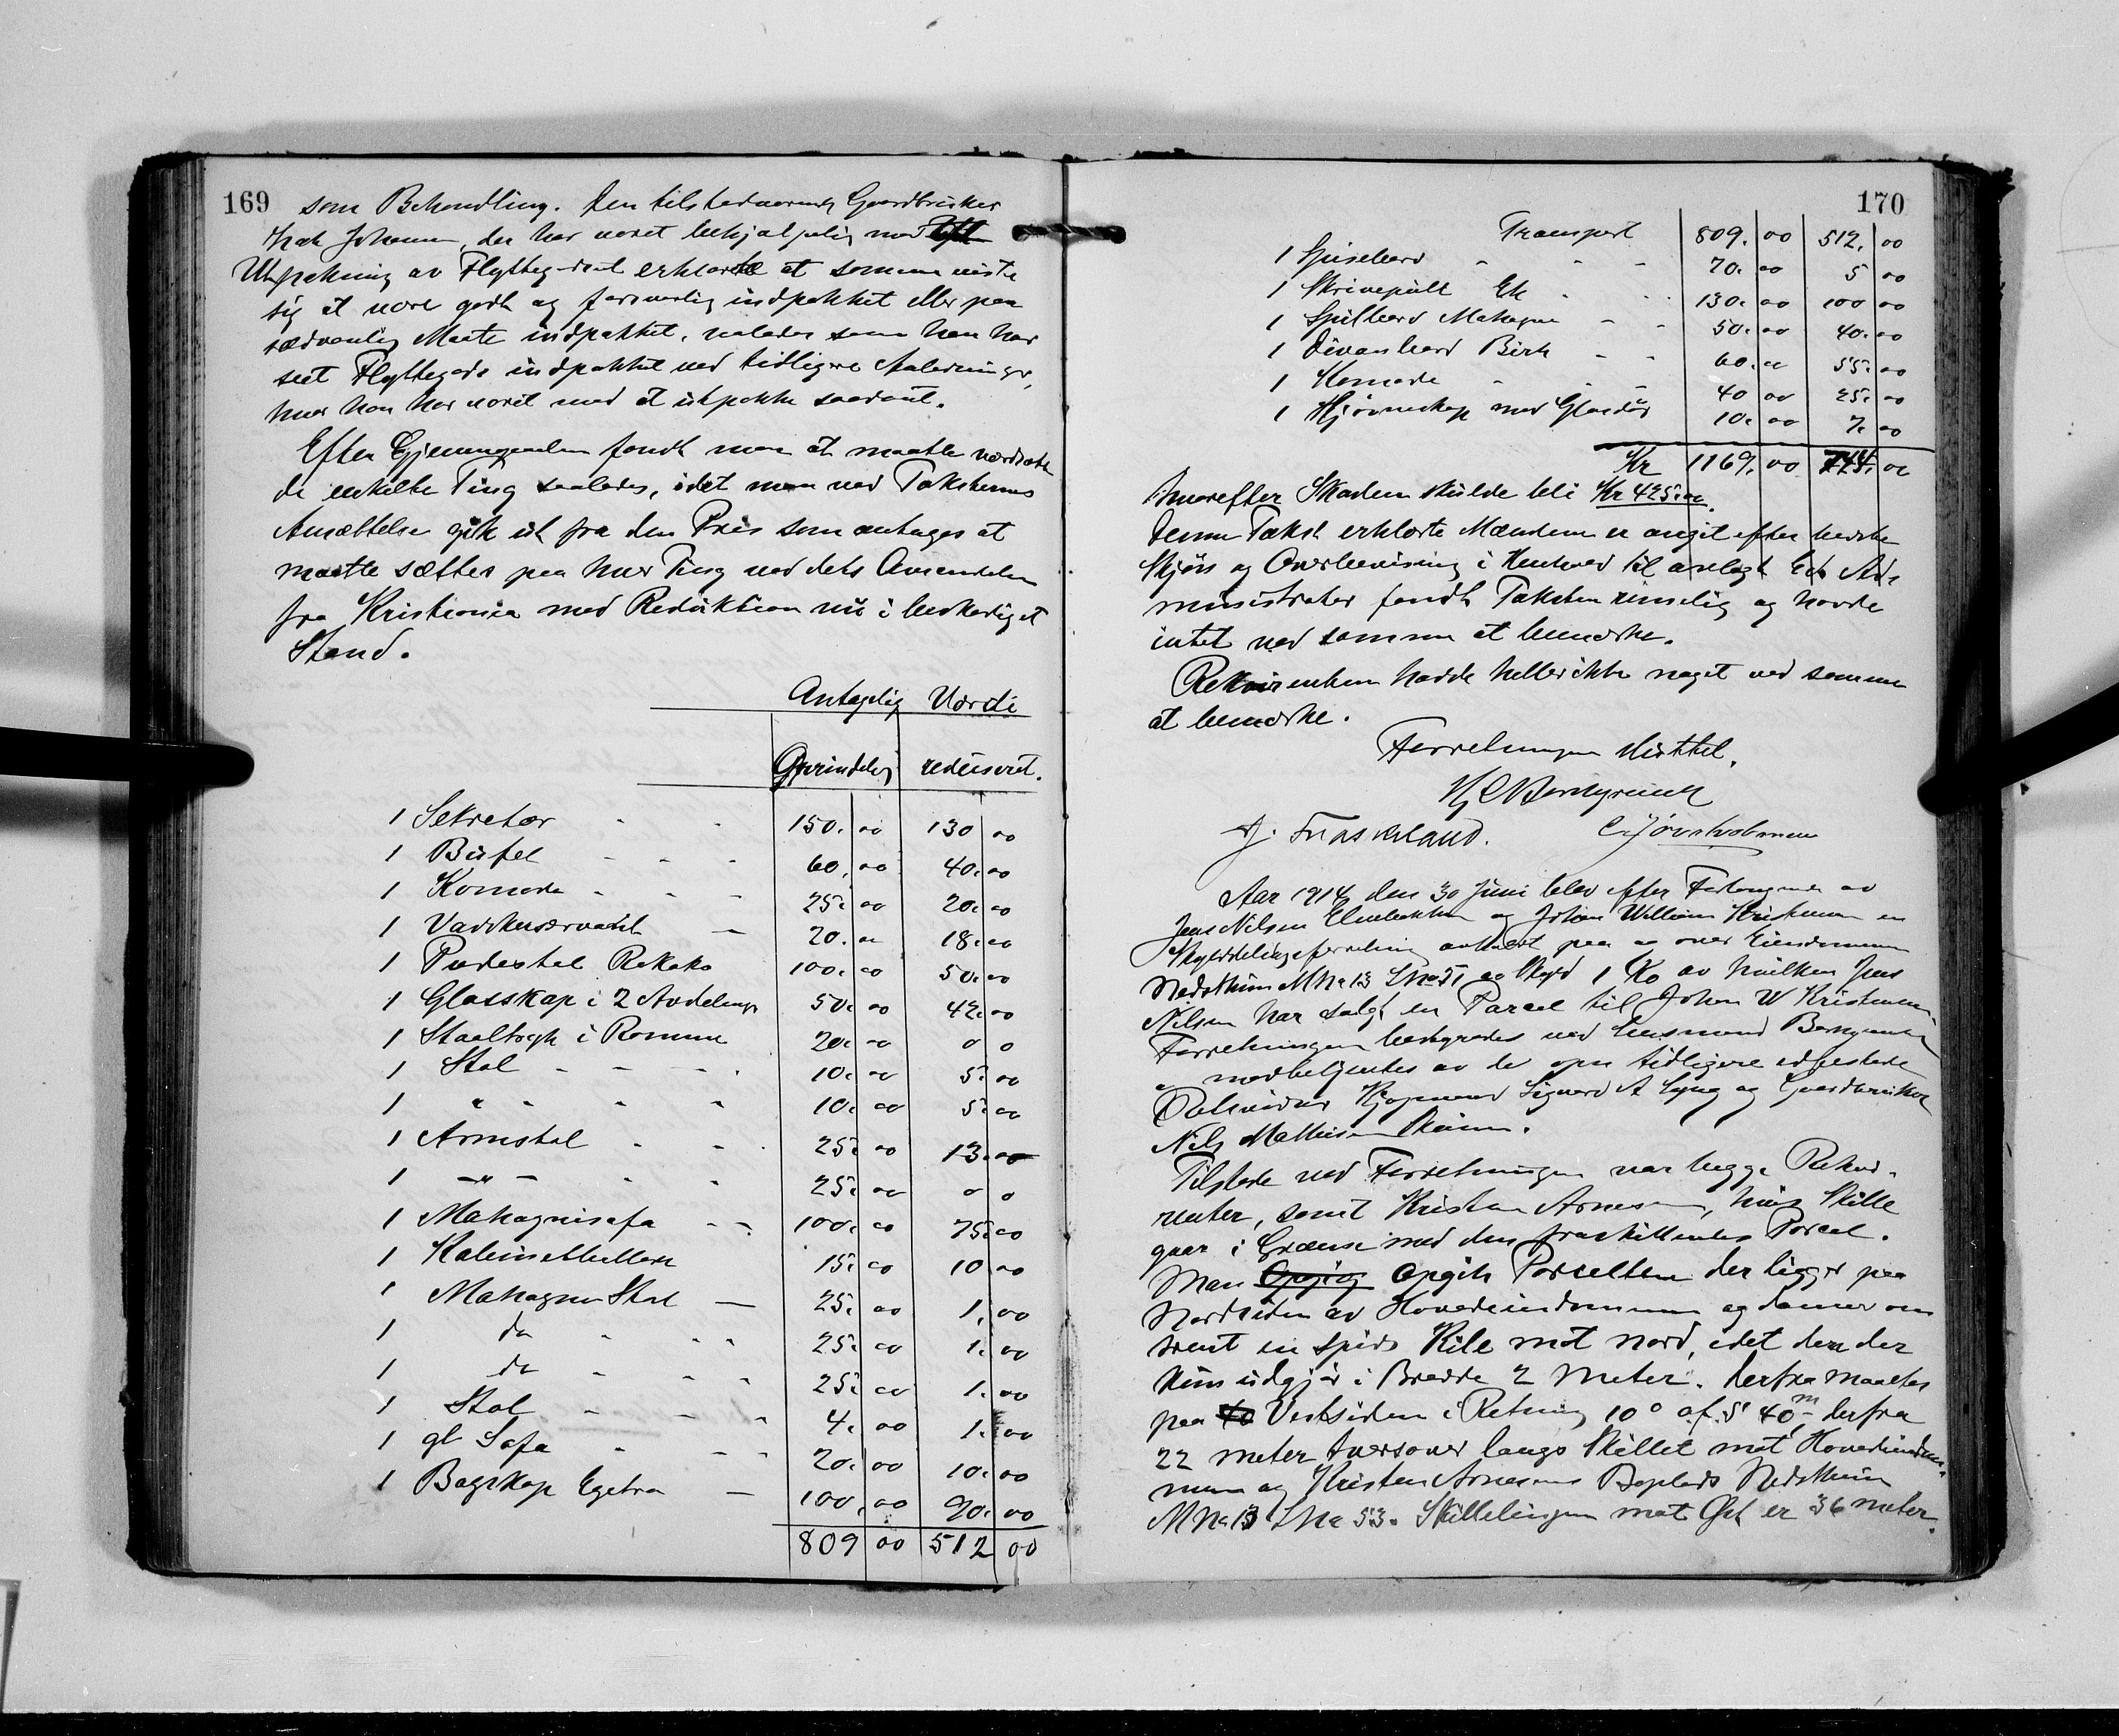 169
som Behandling. Den tilstedværende Gaardbruker
Johansen, der har været behjælpelig med
Utpakning av Flyttegodset erklærte at samme viste
sig at være godt og forsvarlig indpakket eller paa
sædvanlig Maate indpakket, saaledes som han har
seet Flyttegods indpakket ved tidligere Anledninger,
hvor han har været med at utpakke saadant.
Efter Gjennemgaaelsen fandt man at maatte værdsætte
de enkelte Ting saaledes, idet man ved Taksternes
Ansættelse gik ut fra den Pris som antages at
maatte sættes paa hver Ting ved dets Avsendelse
fra Kristiania med Reduktion nu i beskadiget
Stand.
Antagelig Værdi
Oprindelig reduseret.
1 Sekretær - - 150. 00 130 00
1 Bufet - - - 60. 00 40. 00
1 Komode - - - 25. 00 20. 00
1 Vaskeservant - 20. 00 18. 00
1 Pedestal Rokoko 100. 00 50. 00
1 Glasskap i 2 Avdelinger 50. 00 42. 00
1 i 20. 00 0 0
1 Stol - - - - 10. 00 5. 00
1 " - - - 10. 00 5. 00
1 Armstol - - - 25. 00 13. 00
1 -"- - - 25. 00 0 0
1 Mahagnisofa - - 100. 00 75. 00
1 15. 00 10 00
1 Mahagni Stol - 25. 00 1. 00
1 do - - - 25. 00 1. 00
1 do - - - 25. 00 1. 00
1 Stol - - - 4. 00 1. 00
1 gl Sofa - - - 20. 00 10. 00
1 Bogskap Egetræ - 100. 00 90. 00
809 00 512 00
170
Transport 809. 00 512. 00
1 Spisebord - - - 20. 00 5 00
1 Skrivepult Ek - - 130. 00 100 00
1 Spillbord Mahogni - - 50. 00 40. 00
1 Divanbord Birk - - 60. 00 55. 00
1 Komode - - - 40 00 25. 00
1 Hjørneskap med Glasdør 10. 00 7. 00
Kr 1169. 00 744. 00
hvorefter Skaden skulde bli Kr 425.00.
Denne Takst erklærte Mændene er angit efter bedste
Skjøn og Overbevisning i Henhold til avlagt Ed. Ad-
ministrator fandt Taksten rimelig og havde
intet ved samme at bemærke.
Rekvirenten hadde heller ikke noget ved samme
at bemærke.
Forretningen sluttet.
Aar 1914 den 30 Juni blev efter Forlangende av
Jens Nilsen og Johan William Kristensen en
Skylddelingsforretning avholdt paa og over Eiendommen
Nedstheim MNo 13 LNo 51 av Skyld 1 Kr av hvilken Jens
Nilsen har solgt en Parcel til Johan W Kristensen.
Forretningen bestyredes ved Lensmand
og medbetjentes av de opn tidligere edfæstede
Kjøpmand Sigvard A Lyng og Gaardbruker
Nils Mathisen
Tilstede ved Forretningen var begge Rekvi-
renter, samt Kristen Arnesen, hvis Skille
gaar i Grænse med den fraskillende Parcel.
Man opgik Parcellen der ligger paa
Nordsiden av Hovedeiendommen og danner om-
trent en spids Kile mot nord, idet den der
kun udgjør i Bredde 2 Meter. Derfra maaltes
paa Vestsiden i Retning 10° af S 40 m derfra
22 meter tversover langs Skillet mot Hovedeiendom-
men og Kristen Arnesens Boplads Nedstheim
MNo 13 LNo 53. Skillelinjen mot Øst er 36 meter.